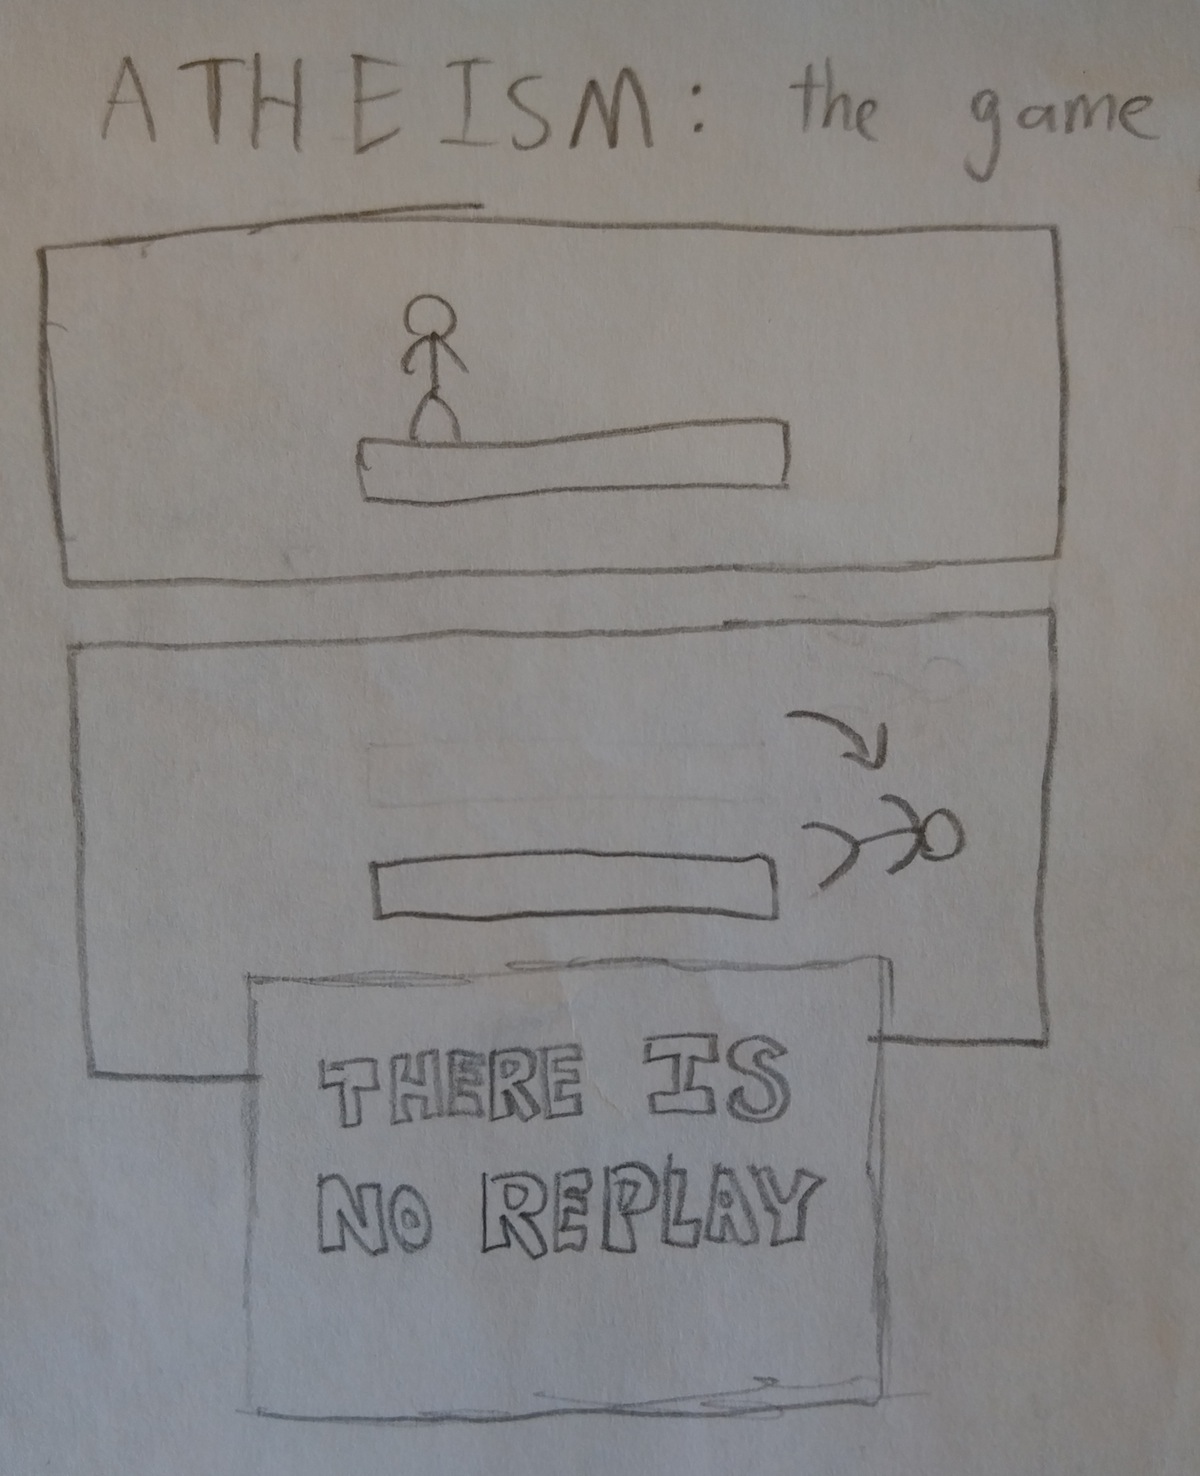 ATHEISM: the game
THERE IS
NO REPLAY